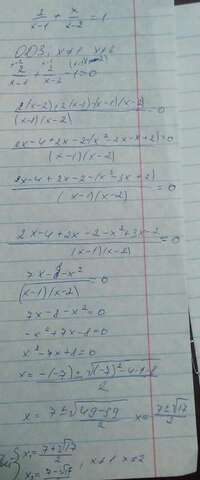 2/(x-1) + x/(x-2) = 1
ОДЗ, x≠1 x≠2
2(x-2)+2(x-1)-(x-1)(x-2)/(x-1)(x-2) = 0
2x-4+2x-2-(x²-2x-x+2)/(x-1)(x-2) = 0
2x-4+2x-2-(x²-3x+2)/(x-1)(x-2) = 0
2x-4+2x-2-x²+3x-2/(x-1)(x-2) = 0
7x-8-x²/(x-1)(x-2) = 0
7x-8-x²=0
-x²+7x-8=0
x²-7x+8=0
x = -(-7)±√(-7)²-4·1·8/2
x = 7±√49-32/2 x = 7±√17/2
x₁ = 7+√17/2
x₂ = 7-√17/2 , x≠1 x≠2